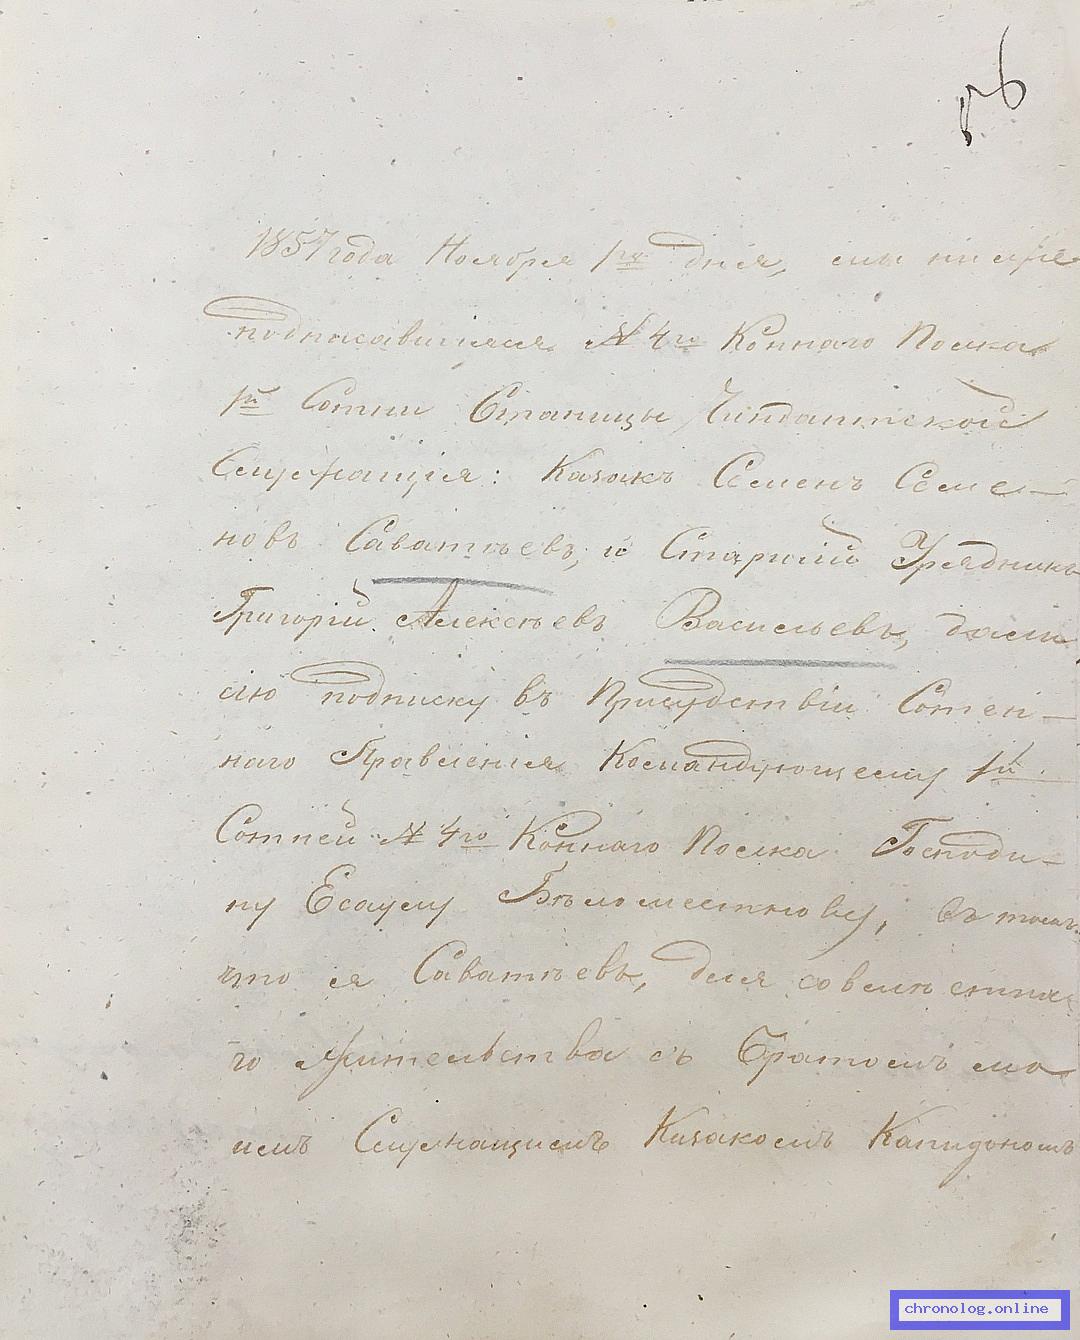 56
1857 года Ноября 1го дня, мы ниже
подписавшияся № 4го Коннаго Полка
1й Сотни Станицы Чиндантской
Служащія: Казакъ Семенъ Семе-
новъ Саватѣевъ, и Старшій Урядникъ
Григорій Алексѣевъ Васильевъ, дали
сію подписку въ Присудствіи Сотен-
наго Правленія Командующему 1й
Сотней № 4го Коннаго Полка Господи-
ну Есаулу Бѣломестнову, въ томъ
что я Саватѣевъ, для совмѣстна-
го жительства съ Братомъ мо
имъ Служащимъ Казакомъ Капидономъ
chronolog.online